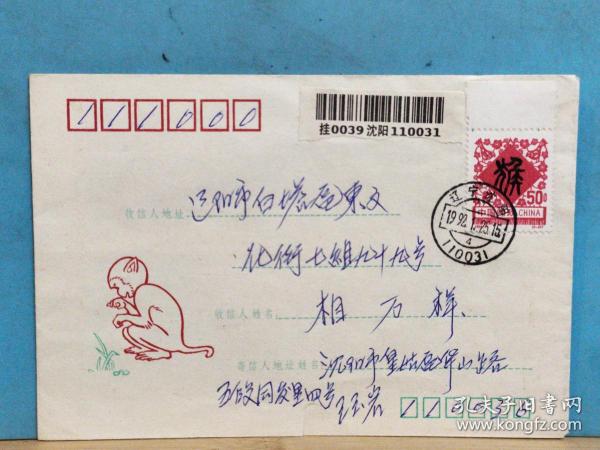 111000
挂0039 沈阳 110031
猴
50分
中国 CHINA
辽宁沈阳
1992.1.25.15
4
110031
收信人地址: 辽阳市白塔区東文
化街七組九十九号
收信人姓名: 相万祥
寄信人地址姓名: 沈阳市皇姑区
号 王岩
孔夫子旧书网
www.kongfz.com